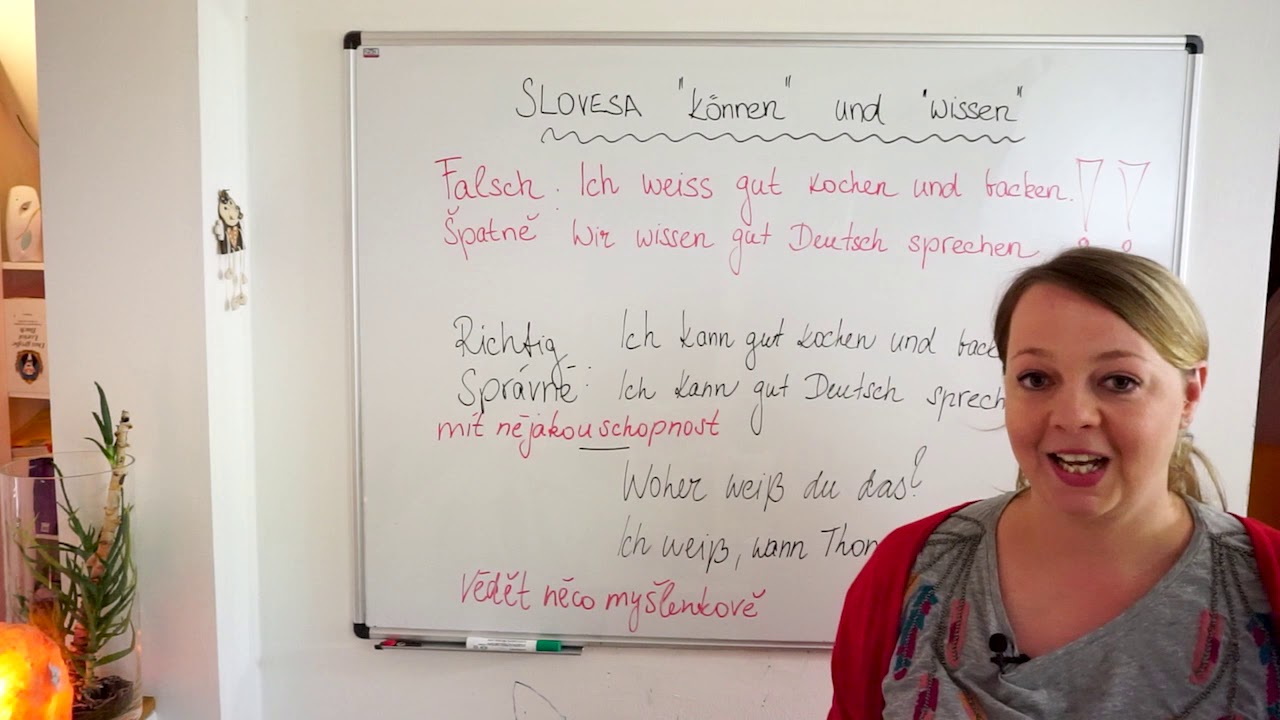 SLOVESA "können" und "wissen"
Falsch : Ich weiss gut kochen und backen.!!
Špatně Wir wissen gut Deutsch sprechen
Richtig Ich kann gut kochen und back
Správně : Ich kann gut Deutsch sprech
mít nějakou schopnost
Woher weiß du das?
Ich weiß, wann Thom
Vědět něco myšlenkově
Das große
Buch